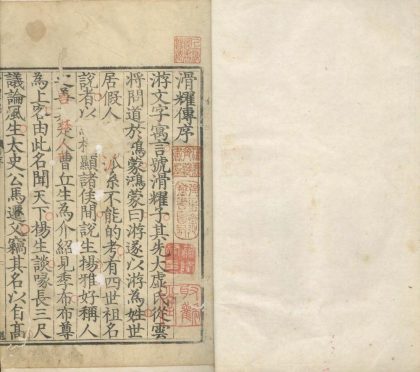 滑耀傳序
游文字寓言號滑耀子其先大虛氏從雲
將問道於鴻蒙鴻蒙曰游遂以游為姓世
居假人 派系不能的考有四世祖名
說者以 顯諸侯間說生揚雅好稱人
之善 楚人曹丘生為介紹見季布布尊
為上客由此名聞天下楊生談喙長三尺
議論風生太史公馬遷文竊其名以自高